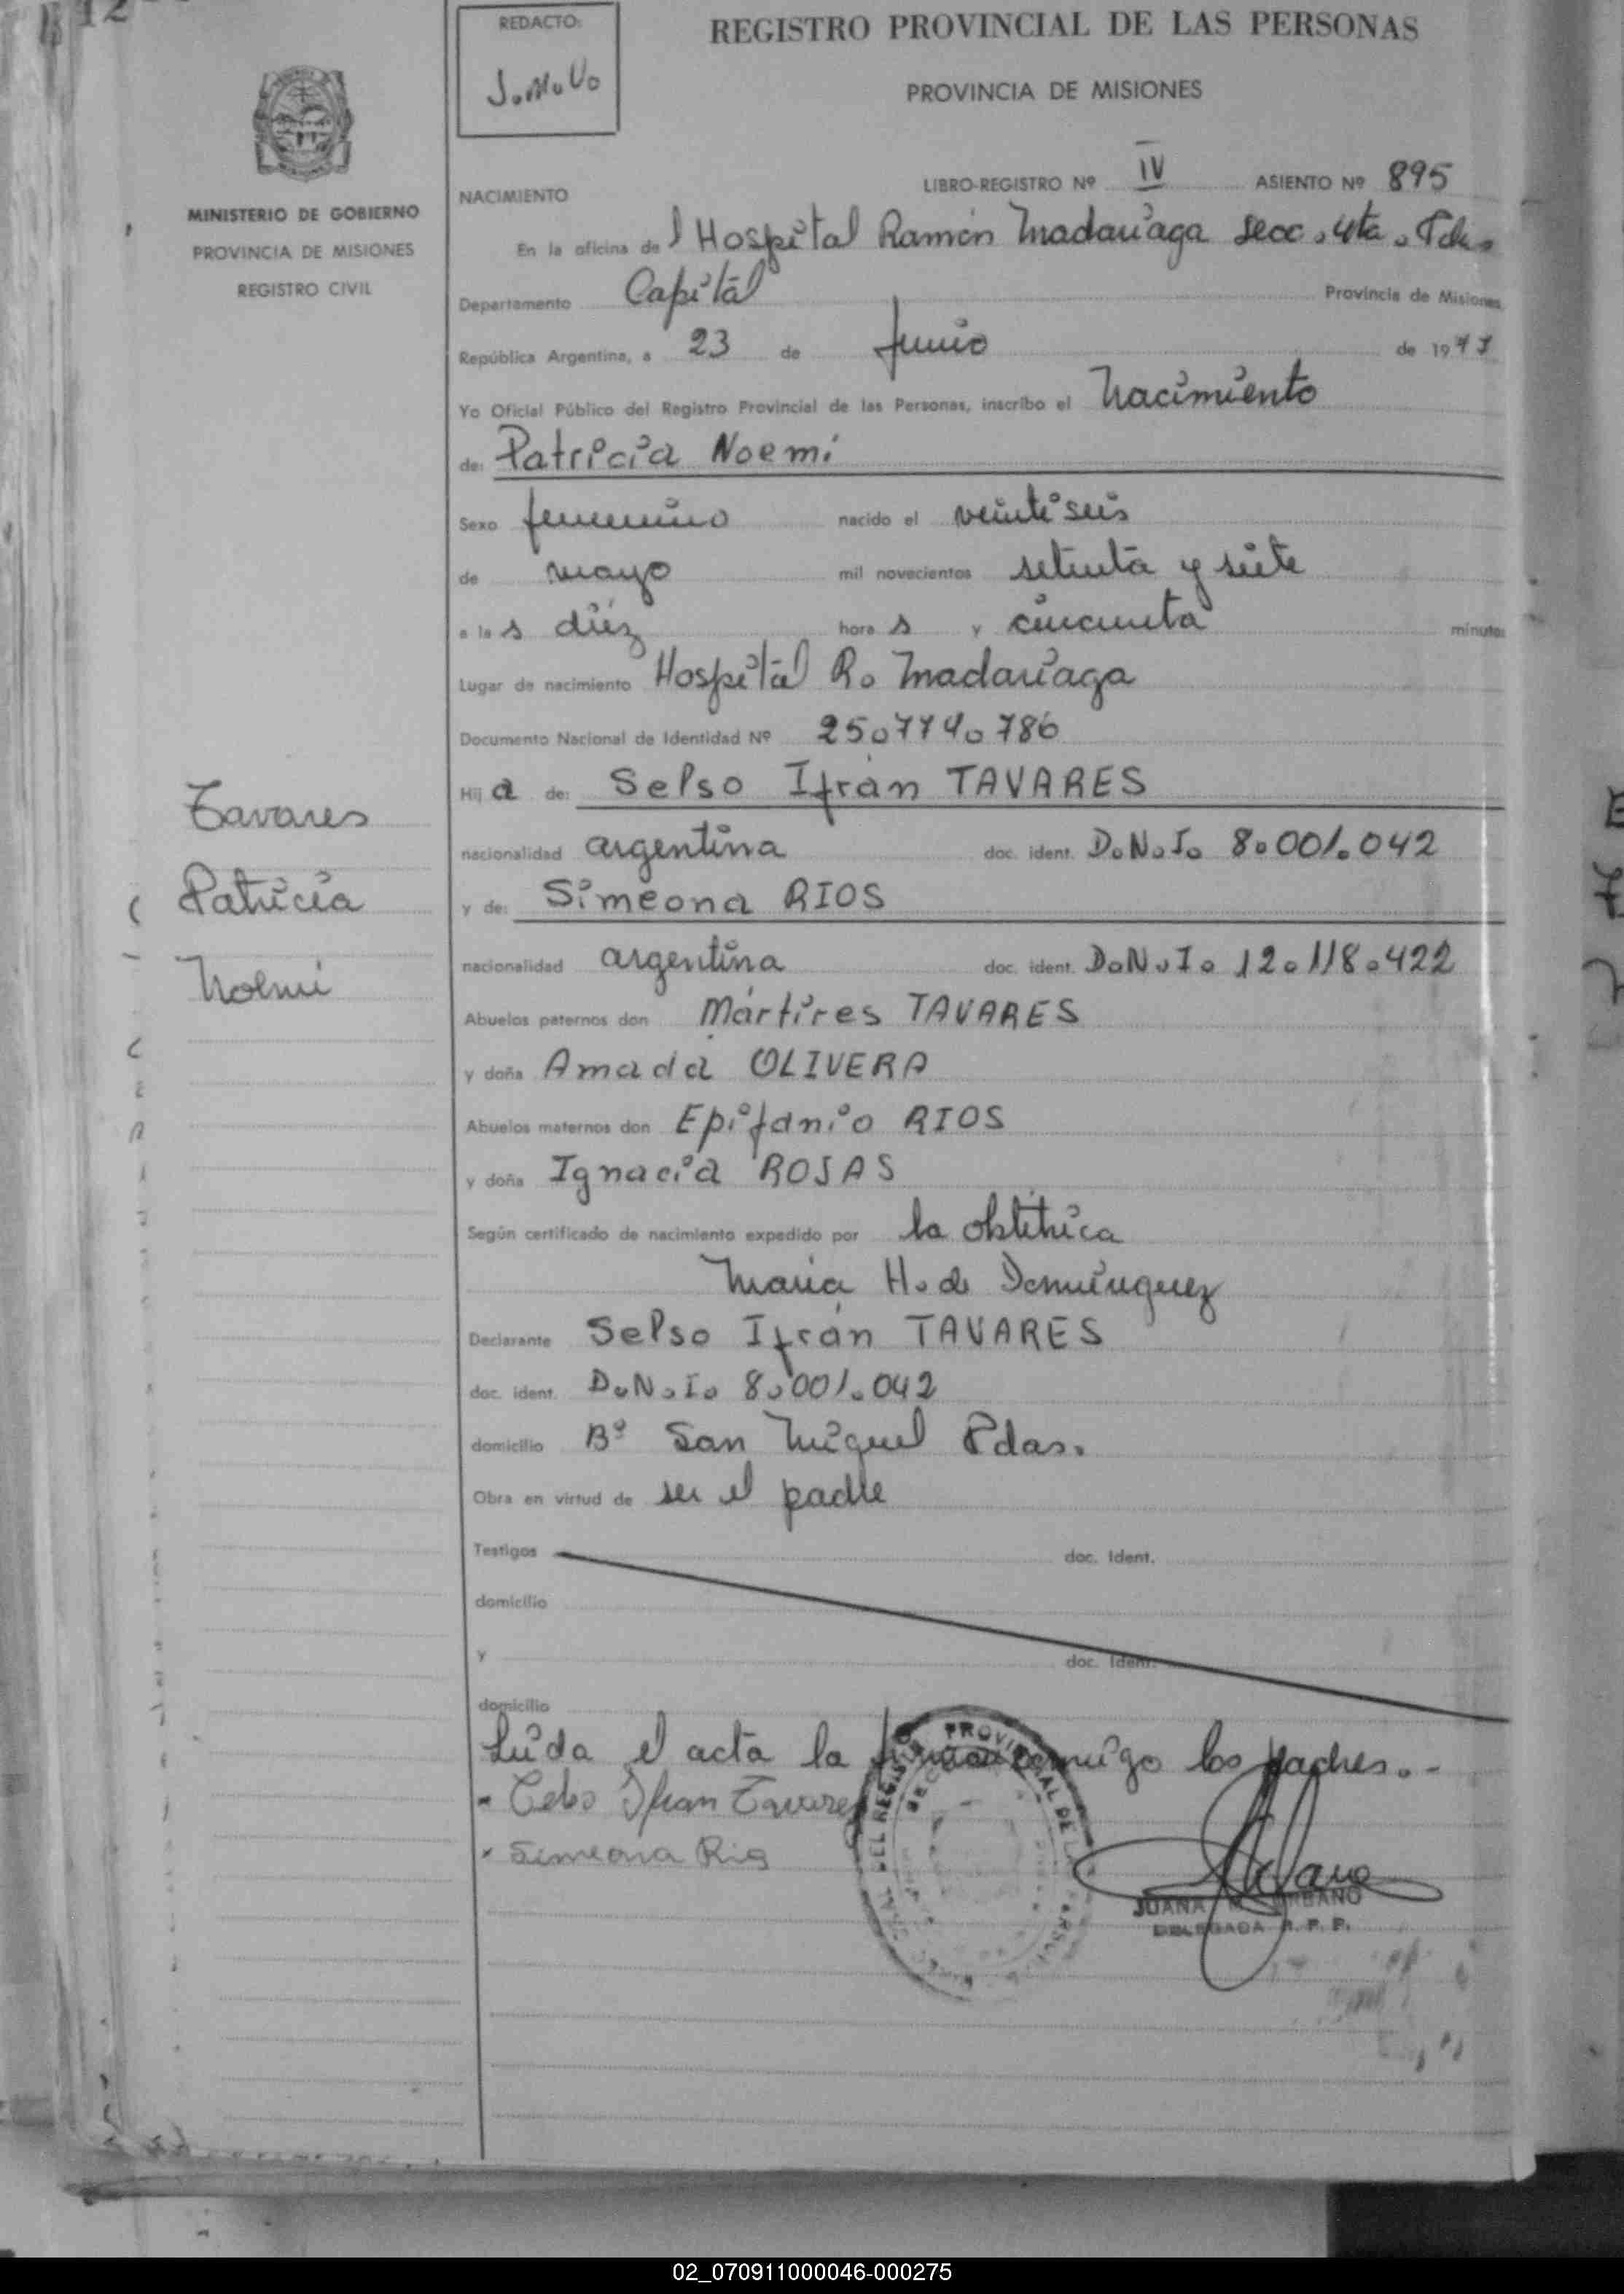 REDACTO:
J.M.U.
REGISTRO PROVINCIAL DE LAS PERSONAS
PROVINCIA DE MISIONES
MINISTERIO DE GOBIERNO
PROVINCIA DE MISIONES
REGISTRO CIVIL
LIBRO-REGISTRO Nº IV ASIENTO Nº 895
NACIMIENTO
En la oficina del Hospital Ramón Madariaga Secc. 4ta.
Departamento Capital Provincia de Misiones
República Argentina, a 23 de Junio de 1977
Yo Oficial Público del Registro Provincial de las Personas, inscribo el Nacimiento
de: Patricia Noemi
Sexo femenino nacido el veintiseis
de mayo mil novecientos setenta y siete
a las diéz horas y cincuenta minutos
Lugar de nacimiento Hospital R. Madariaga
Documento Nacional de Identidad Nº 25.774.786
Hija de: Selso Ifrán TAVARES
nacionalidad argentina doc. ident. D.N.I. 8.001.042
y de: Simeona RIOS
nacionalidad argentina doc. ident. D.N.I. 12.118.422
Abuelos paternos don Mártires TAVARES
y doña Amada OLIVERA
Abuelos maternos don Epifanio RIOS
y doña Ignacia ROJAS
Según certificado de nacimiento expedido por la obstétrica
Maria H. de Dominguez
Declarante Selso Ifrán TAVARES
doc. ident. D.N.I. 8.001.042
domicilio Bº San Miguel Pdas.
Obra en virtud de ser el padre
Testigos doc. Ident.
domicilio
y doc. Ident.
domicilio
Leida el acta la firman conmigo los padres.-
Celso Ifran Tavares
Simeona Rios
JUANA M. URBANO
DELEGADA R. P. P.
Tavares
Patricia
Noemi
02_070911000046-000275